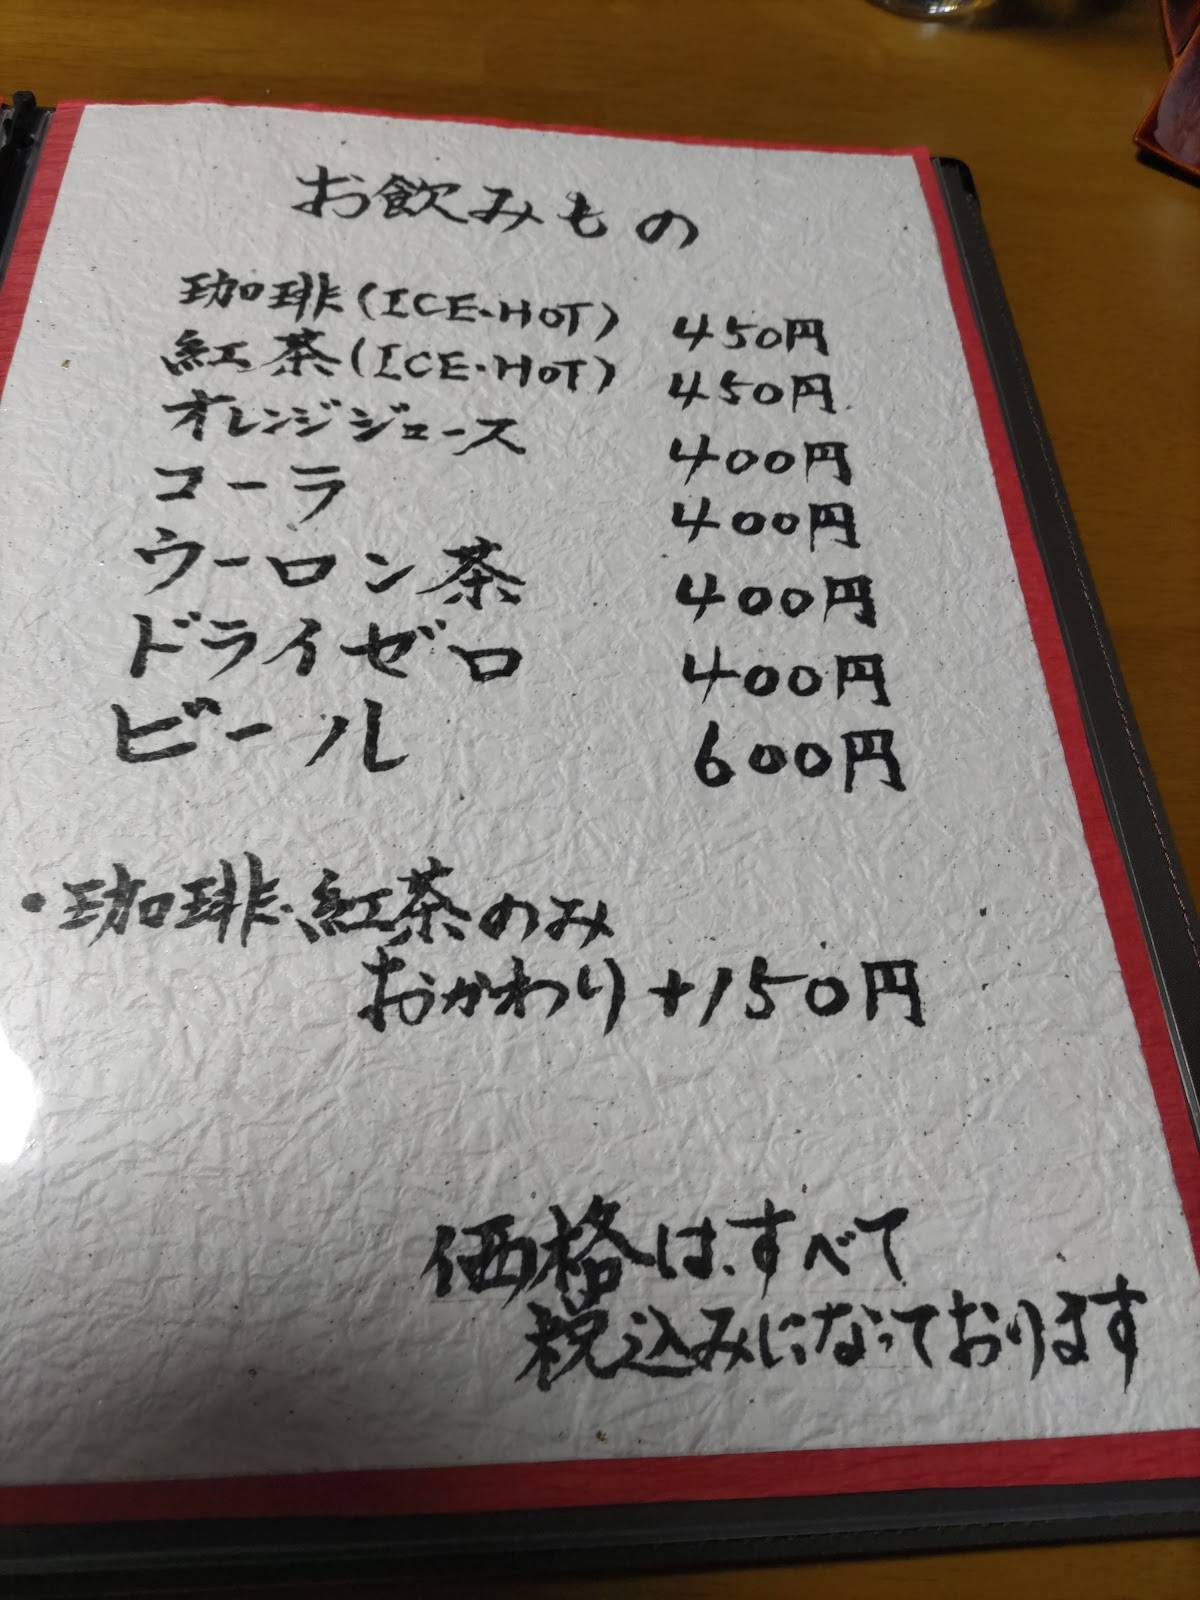 お飲みもの
珈琲(ICE・HOT) 450円
紅茶(ICE・HOT) 450円
オレンジジュース 400円
コーラ 400円
ウーロン茶 400円
ドライゼロ 400円
ビール 600円
・珈琲、紅茶のみ
おかわり+150円
価格は、すべて
税込みになっております